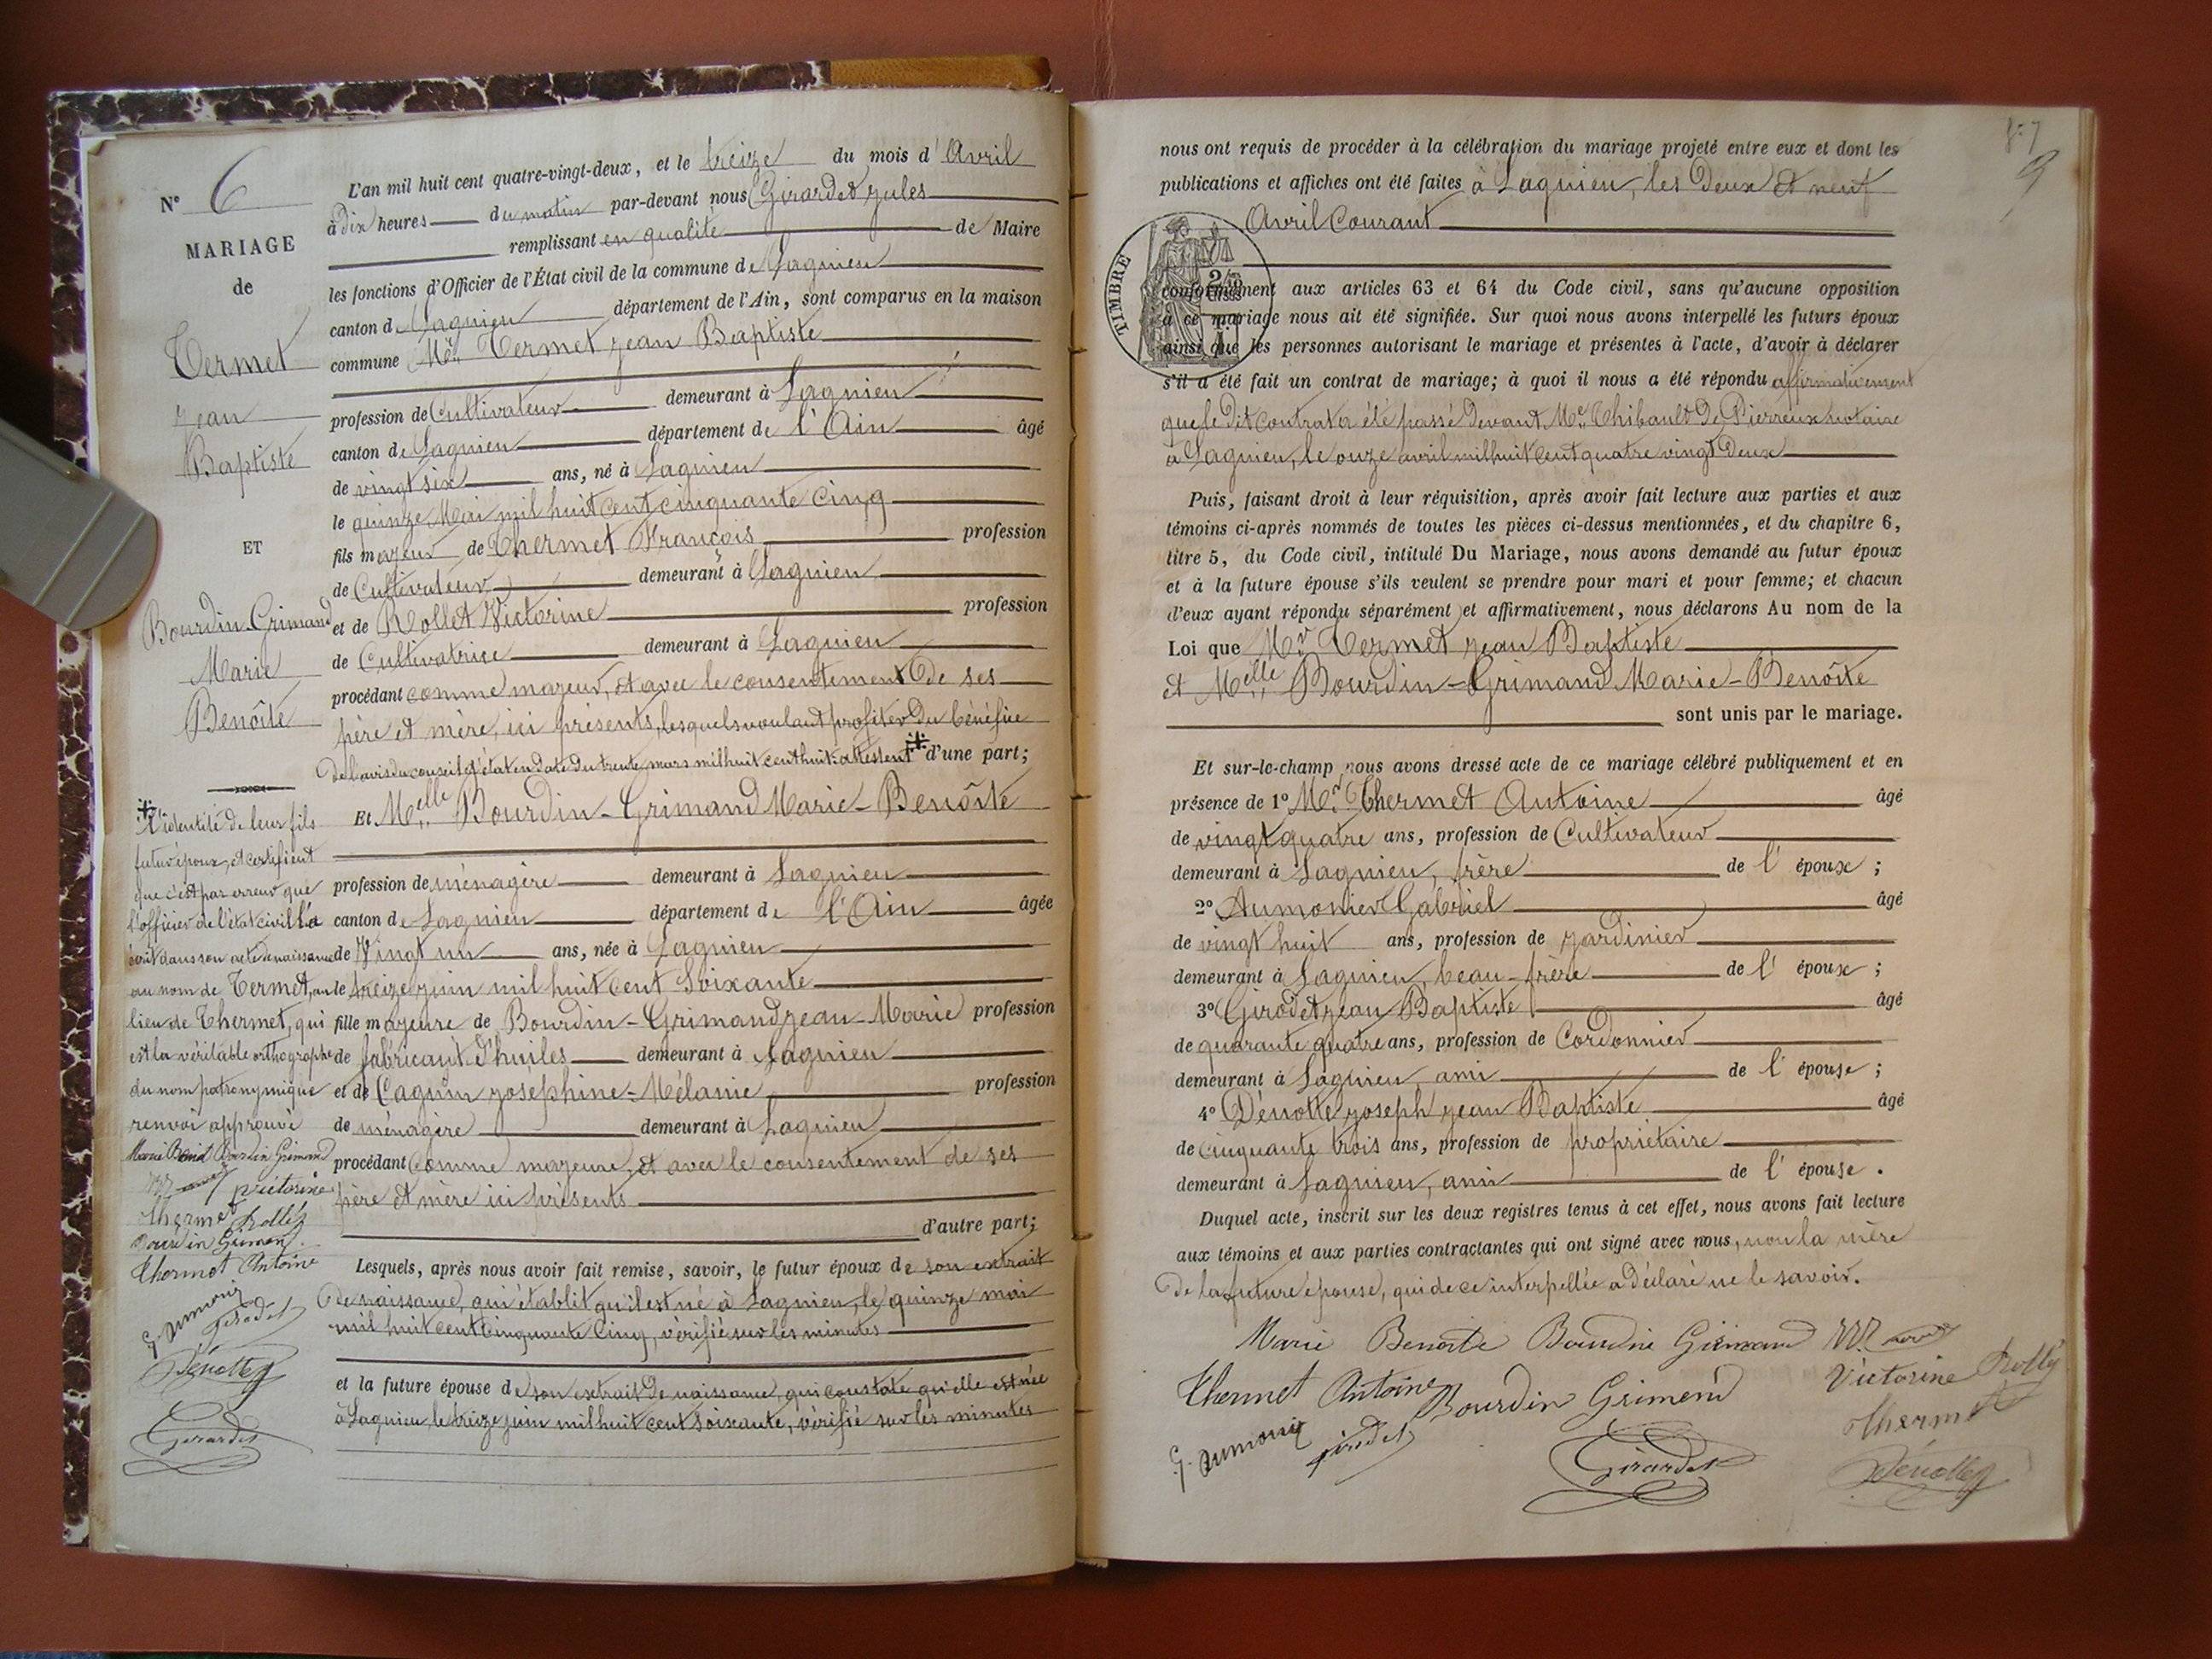 N° 6
MARIAGE
de
Termet
Jean
Baptiste
ET
Bourdin-Grimaud
Marie
Benoîte
※ l'identité de leur fils
futur époux, et certifient
que c'est par erreur que
l'officier de l'état civil l'a
écrit dans son acte de naissance
au nom de Termet, au
lieu de Thermet, qui
est la véritable orthographe
du nom patronymique
renvoi approuvé
Marie Benoit Bourdin Grimaud
victorine
thermet Rollet
Bourdin Grimand
thermet Antoine
G. Aumonier
girodet
Dénottez
Girardet
L'an mil huit cent quatre-vingt-deux, et le treize du mois d'Avril
à dix heures du matin par-devant nous Girardet Jules
remplissant en qualité de Maire
les fonctions d'Officier de l'État civil de la commune de Lagnieu
canton de Lagnieu département de l'Ain, sont comparus en la maison
commune Mr. Termet Jean Baptiste
profession de Cultivateur demeurant à Lagnieu
canton de Lagnieu département de l'Ain âgé
de vingt six ans, né à Lagnieu
le quinze Mai mil huit cent cinquante cinq
fils majeur de Thermet François profession
de Cultivateur demeurant à Lagnieu
et de Rollet Victorine profession
de Cultivatrice demeurant à Lagnieu
procédant comme majeur, et avec le consentement de ses
père et mère, ici présents, lesquels voulant profiter du bénéfice
de l'avis du conseil d'état en date du trente mars mil huit cent huit: attestent ※ d'une part;
Et Melle Bourdin-Grimaud Marie-Benoîte
profession de ménagère demeurant à Lagnieu
canton de Lagnieu département de l'Ain âgée
de Vingt un ans, née à Lagnieu
le treize juin mil huit cent Soixante
fille majeure de Bourdin-Grimaud Jean-Marie profession
de fabricant d'huiles demeurant à Lagnieu
et de Cagnin Josephine-Mélanie profession
de ménagère demeurant à Lagnieu
procédant comme majeure, et avec le consentement de ses
père et mère ici présents
d'autre part;
Lesquels, après nous avoir fait remise, savoir, le futur époux de son extrait
de naissance, qui établit qu'il est né à Lagnieu, le quinze mai
mil huit cent cinquante cinq, vérifié sur les minutes
et la future épouse de son extrait de naissance, qui constate qu'elle est née
à Lagnieu, le treize juin mil huit cent soixante, vérifié sur les minutes
87
9
nous ont requis de procéder à la célébration du mariage projeté entre eux et dont les
publications et affiches ont été faites à Lagnieu, les Deux et neuf
Avril Courant
TIMBRE
conformément aux articles 63 et 64 du Code civil, sans qu'aucune opposition
à ce mariage nous ait été signifiée. Sur quoi nous avons interpellé les futurs époux
ainsi que les personnes autorisant le mariage et présentes à l'acte, d'avoir à déclarer
s'il a été fait un contrat de mariage; à quoi il nous a été répondu affirmativement
que le dit contrat a été passé devant Me. Thibault De Pierreux notaire
à Lagnieu, le onze avril mil huit cent quatre vingt Deux
Puis, faisant droit à leur réquisition, après avoir fait lecture aux parties et aux
témoins ci-après nommés de toutes les pièces ci-dessus mentionnées, et du chapitre 6,
titre 5, du Code civil, intitulé Du Mariage, nous avons demandé au futur époux
et à la future épouse s'ils veulent se prendre pour mari et pour femme; et chacun
d'eux ayant répondu séparément et affirmativement, nous déclarons Au nom de la
Loi que Mr. Termet Jean Baptiste
et Melle Bourdin-Grimaud Marie-Benoîte
sont unis par le mariage.
Et sur-le-champ nous avons dressé acte de ce mariage célébré publiquement et en
présence de 1° Mr. Thermet Antoine âgé
de vingt quatre ans, profession de Cultivateur
demeurant à Lagnieu, frère de l'époux;
2° Aumonier Gabriel âgé
de vingt huit ans, profession de jardinier
demeurant à Lagnieu, beau-frère de l'époux;
3° Girodet Jean Baptiste âgé
de quarante quatre ans, profession de Cordonnier
demeurant à Lagnieu, ami de l'épouse;
4° Dénotte Joseph Jean Baptiste âgé
de cinquante trois ans, profession de propriétaire
demeurant à Lagnieu, ami de l'épouse.
Duquel acte, inscrit sur les deux registres tenus à cet effet, nous avons fait lecture
aux témoins et aux parties contractantes qui ont signé avec nous, non la mère
De la future épouse, qui de ce interpellée a déclaré ne le savoir.
Marie Benoîte Bourdin Grimaud
thermet Antoine Bourdin Grimend Victorine Rolley
thermet
G. Aumonier girodet Girardet Dénottez